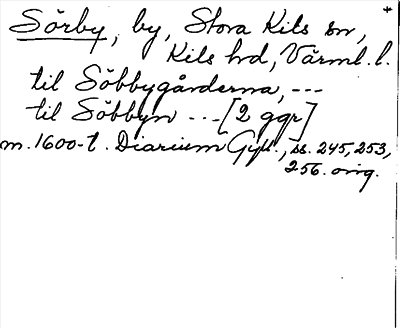 Sörby, by, Stora Kils sn, +
Kils hd, Värml. l.
til Söbbygårderna, ---
til Söbbyn --- [2 ggr]
m. 1600-t. Diarium Gyll., ss. 245, 253,
256. orig.